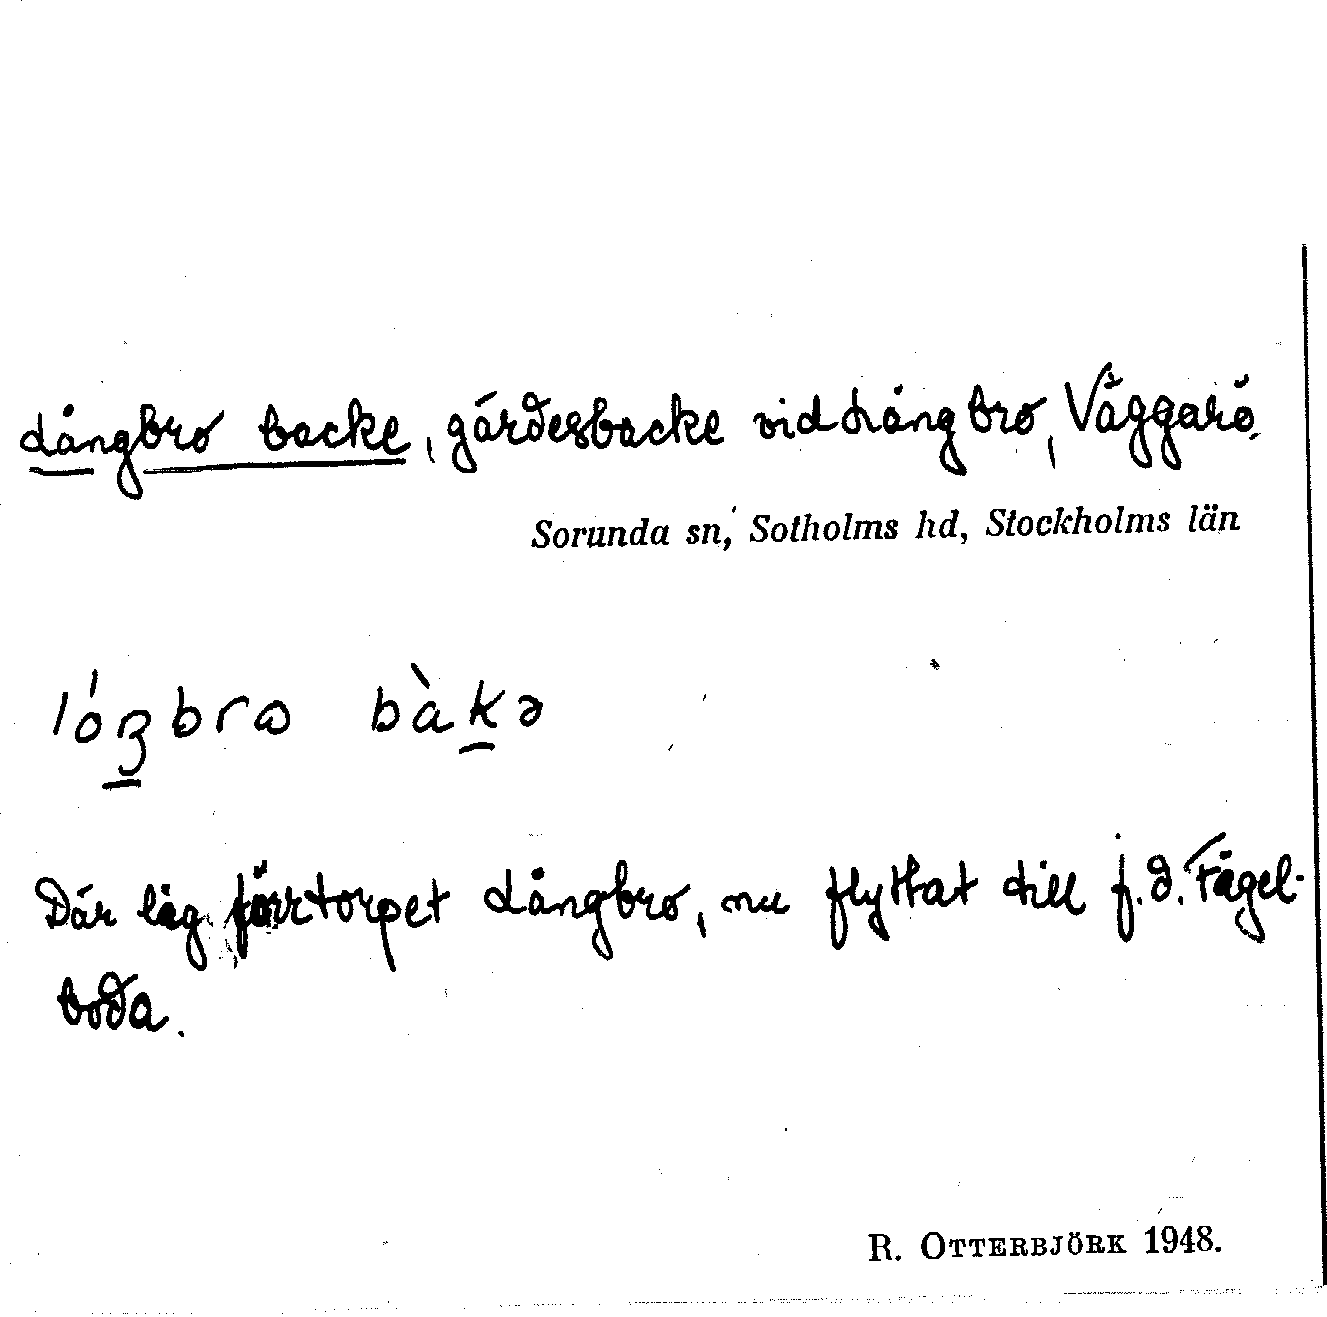 Långbro backe, gärdesbacke vid Långbro, Väggarö,
Sorunda sn, Sotholms hd, Stockholms län
lóŋbrω bàkə
Där låg förr torpet Långbro, nu flyttat till f.d. Fågel-
boda.
R. OTTERBJÖRK 1948.